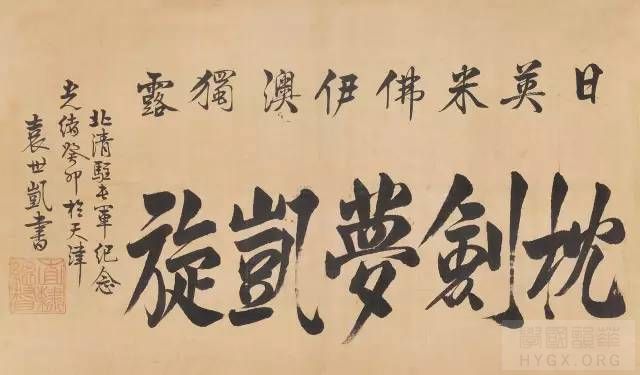 日英米佛伊澳獨露
枕劍夢凱旋
北清駐屯軍紀念
光緒癸卯於天津
袁世凱書
直隸總督
華韻國學
HYGX.ORG